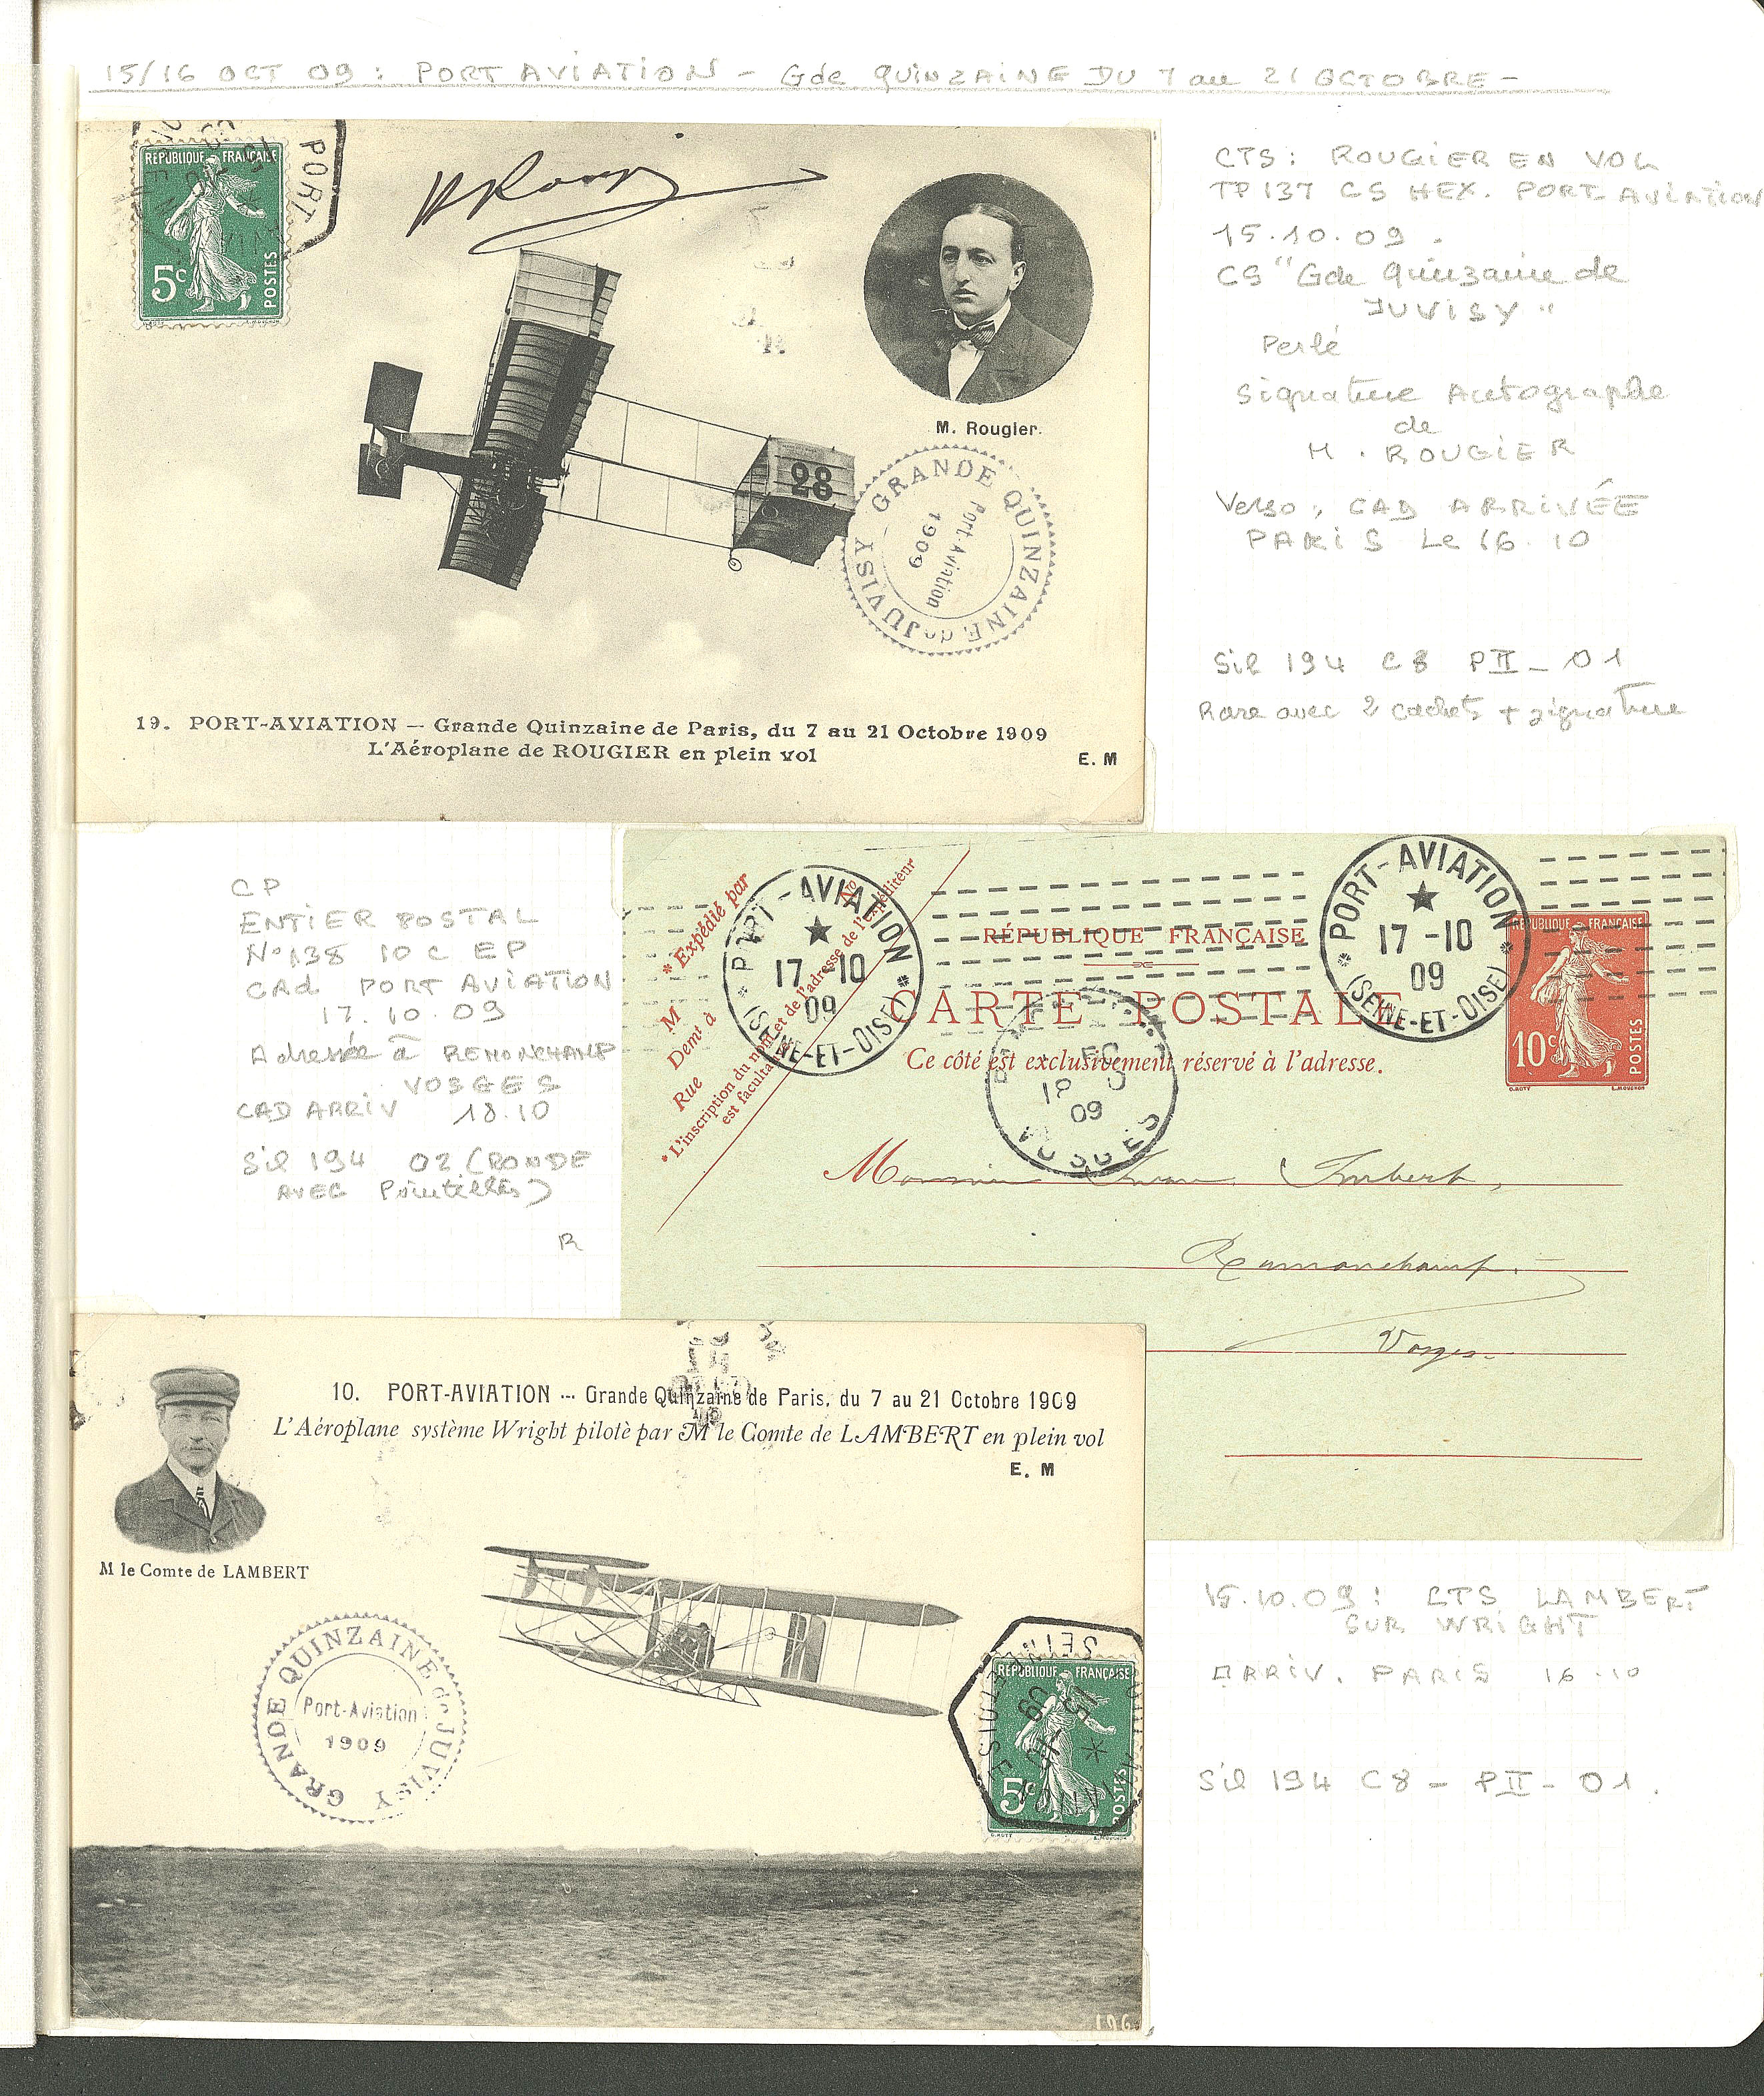 15/16 OCT 09 : PORT AVIATION – Gde QUINZAINE DU 7 au 21 OCTOBRE –
RÉPUBLIQUE FRANÇAISE
5c
POSTES
PORT
M. Rougier.
28
GRANDE QUINZAINE de JUVISY
Port-Aviation
1909
19. PORT-AVIATION — Grande Quinzaine de Paris, du 7 au 21 Octobre 1909
L'Aéroplane de ROUGIER en plein vol
E. M
CTS : ROUGIER EN VOL
TP 137 CS HEX. PORT AVIATION
15.10.09.
CS "Gde Quinzaine de
JUVISY"
Perlé
Signature Autographe
de
M. ROUGIER
Verso : CAD ARRIVÉE
PARIS Le 16.10
Sil 194 C8 PII – 01
Rare avec 2 cachets + signature
CP
ENTIER POSTAL
N° 138 10 C EP
CAd PORT AVIATION
17.10.09
Adressée à REMONCHAMP
VOSGES
CAD ARRIV 18.10
Sil 194 02 (RONDE
AVEC Pointillés)
R
* Expédié par
M
Demt à
Rue
No
* L'inscription du nom et de l'adresse de l'expéditeur
est facultative
PORT-AVIATION
17-10
09
(SEINE-ET-OISE)
RÉPUBLIQUE FRANÇAISE
CARTE POSTALE
Ce côté est exclusivement réservé à l'adresse.
PORT-AVIATION
17-10
09
(SEINE-ET-OISE)
RÉPUBLIQUE FRANÇAISE
10c
POSTES
O.ROTY L.MOUCHON
18
09
VOSGES
Monsieur Imbert,
Ramonchamp.
Vosges.
10. PORT-AVIATION --- Grande Quinzaine de Paris, du 7 au 21 Octobre 1909
L'Aéroplane système Wright pilotè par M le Comte de LAMBERT en plein vol
E. M
M le Comte de LAMBERT
GRANDE QUINZAINE de JUVISY
Port-Aviation
1909
RÉPUBLIQUE FRANÇAISE
5c
POSTES
15.10.09 : CTS LAMBERT
SUR WRIGHT
ARRIV. PARIS 16.10
Sil 194 C8 – PII – 01.